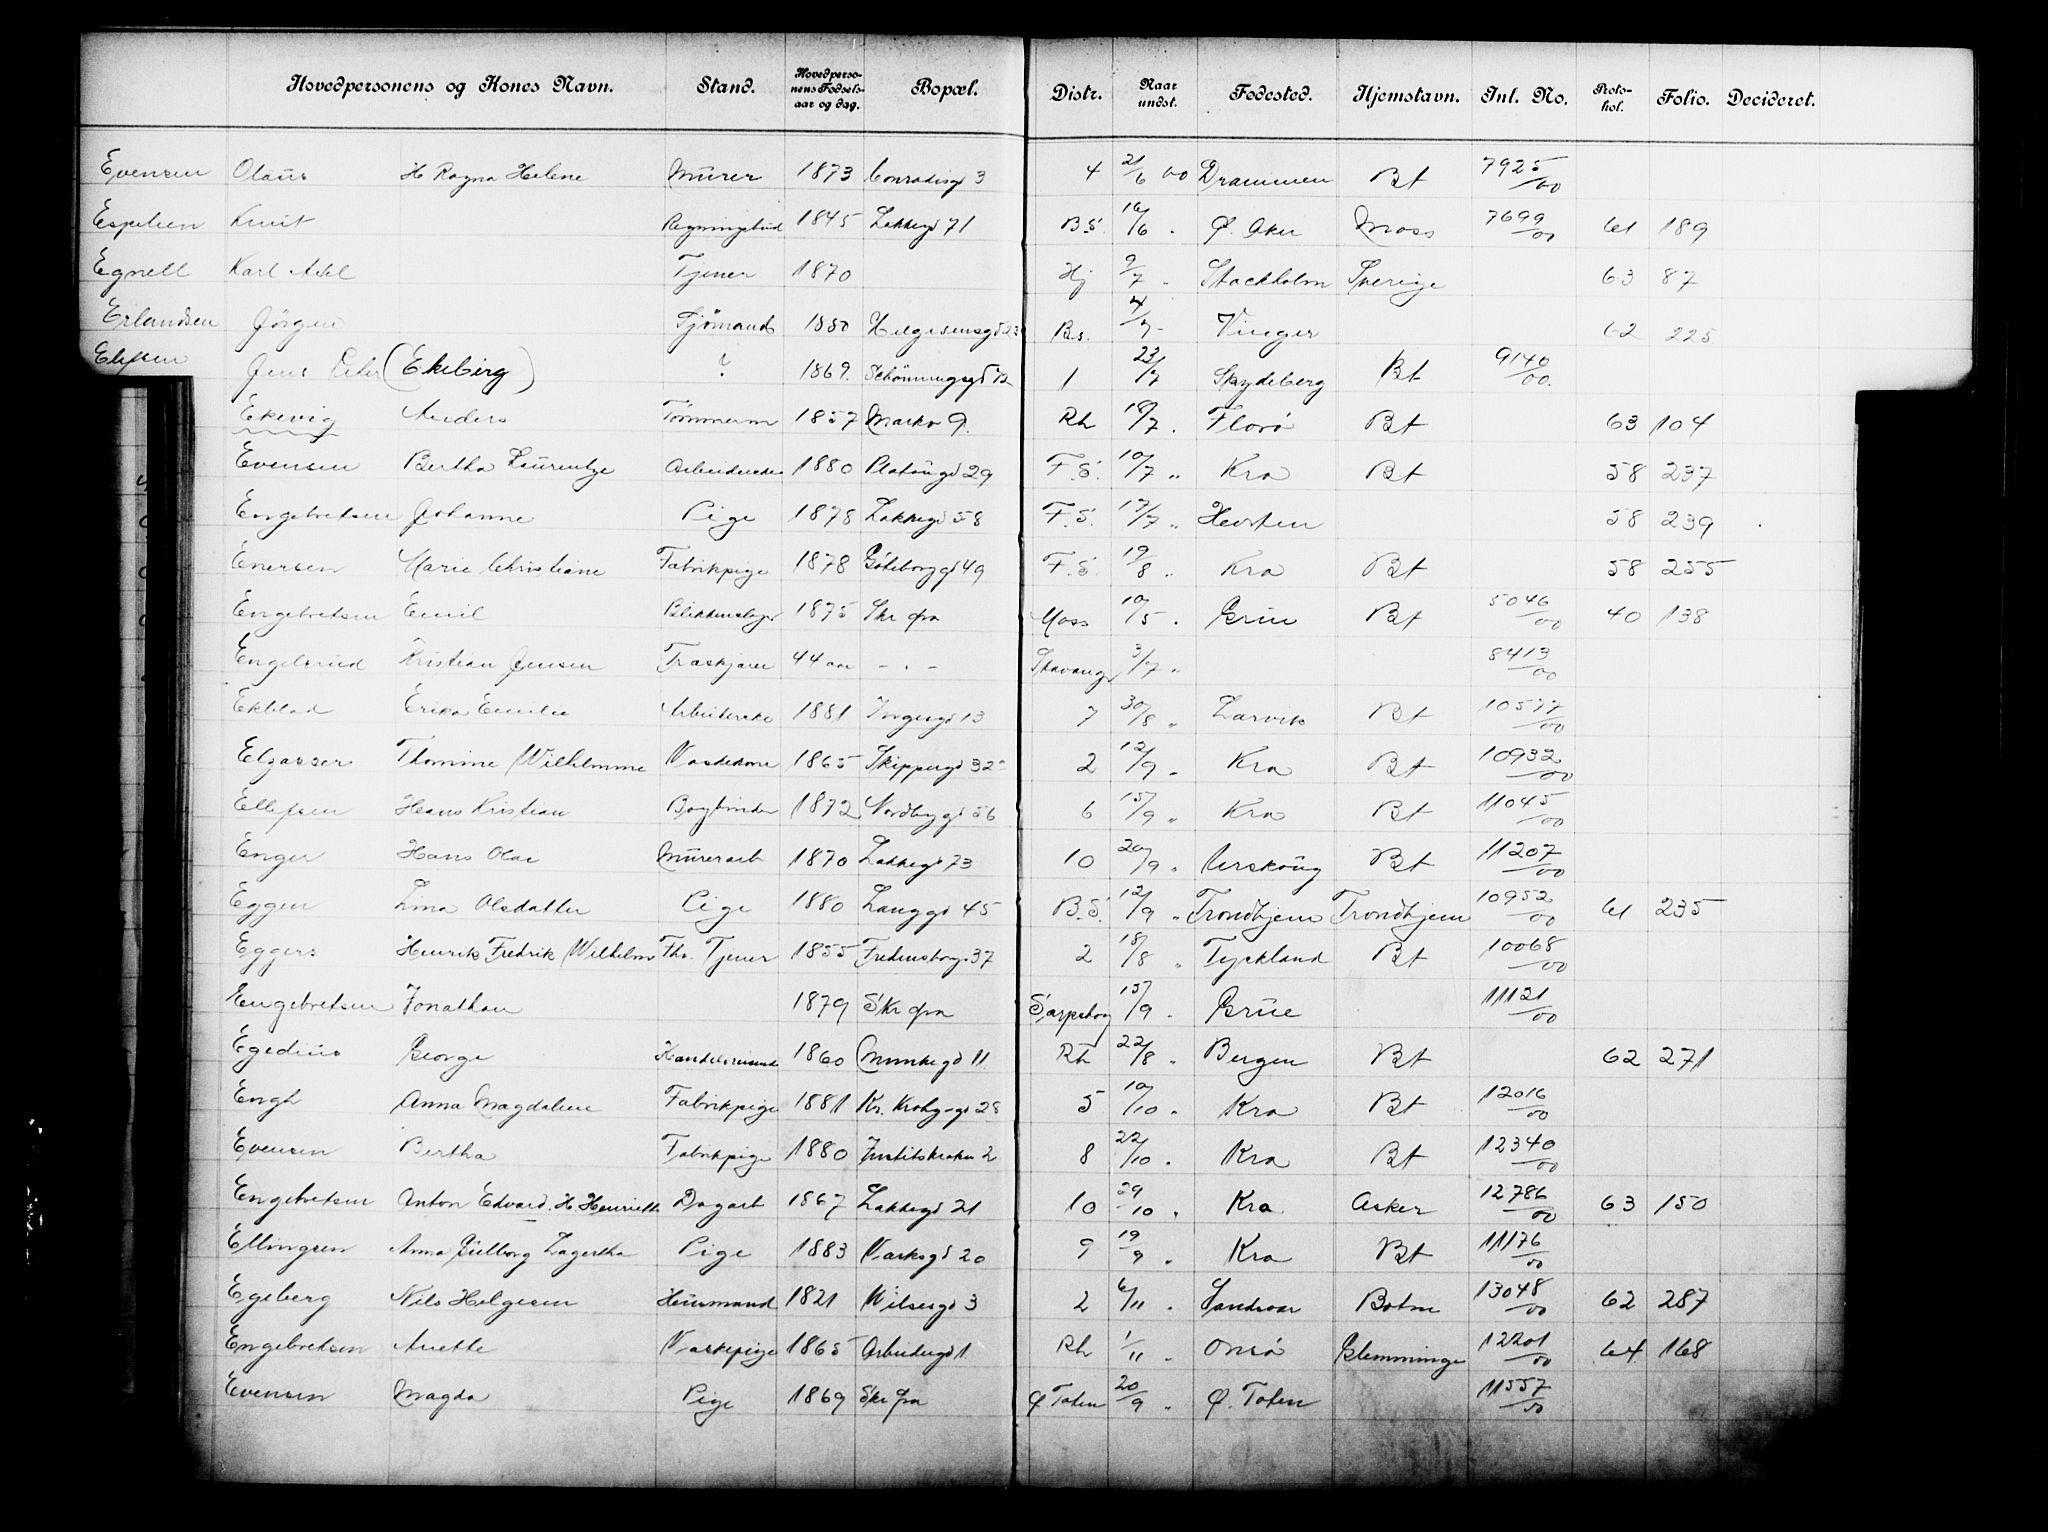 Hovedpersonens og Kones Navn. Stand. Hovedperso-nens Fødsels-aar og dag. Bopæl. Distr. Naar undst. Fødested. Hjemstavn. Inl. No. Proto-kol. Folio. Decideret.
Evensen Olaus H Ragna Helene Murer 1873 Conradisgd 3 4 21/6 00 Drammen Bt 7925/00
Espelien Knut Regningsbud 1845 Lakkegd 71 B.S. 16/6 . Ø. Aker Moss 7699/00 61 189
Egnell Karl Axel Tjener 1870 Hj 9/7 " Stockholm Sverige 63 87
Erlandsen Jørgen Sjømand 1880 Helgesensgd 23 Bs. 4/7 - Vinger 62 225
Elefsen Jens Peder (Ekeberg) ? 1869. Schønningsgd 12 1 23/7 Spydeberg Bt 9140/00.
Ekevig Anders Tømmerm 1857 Markv 9. Rh 18/7 . Florø Bt 63 104
Evensen Bertha Laurentze Arbeiderske 1880 Platousgd 29 F.S. 10/7 " Kra Bt 58 237
Engebretsen Johanne Pige 1878 Lakkegd 58 F.S. 17/7 " Horten 58 239
Enersen Marie Christiane Fabrikpige 1878 Göteborggd 49 F.S. 19/8 " Kra Bt 58 255
Engebretsen Emil Blikkenslager 1875 Skr fra Moss 10/5 . Grue Bt 5046/00 40 138
Engelsrud Kristian Jensen Træskjærer 44 aar - " - Stavanger 3/7 " 8413/00
Ekblad Erika Emilie Arbeiderske 1881 Ingesgd 13 7 30/8 " Larvik Bt 10577/00
Elzasser Thomine Wilhelmine Vaskekone 1865 Skippergd 32 2 12/9 " Kra Bt 10932/00
Ellefsen Hans Kristian Bogbinder 1872 Nordbygd 56 6 15/9 " Kra Bt 11045/00
Enger Hans Olai Murerarb 1870 Lakkegd 73 10 20/9 " Urskoug Bt 11207/00
Eggen Lina Olsdatter Pige 1880 Langgd 45 B.S. 12/9 " Trondhjem Trondhjem 10952/00 61 235
Eggers Henrik Fredrik Wilhelm Fhv. Tjener 1855 Fredensborgv 37 2 18/8 " Tyskland Bt 10068/00
Engebretsen Jonathan 1879 Skr fra Sarpsborg 15/9 . Grue 11121/00
Egedius George Handelsreisende 1860 Munkegd 11 Rh 22/8 " Bergen Bt 62 271
Engh Anna Magdalene Fabrikpige 1881 Kr. Kroghsgd 28 5 10/10 " Kra Bt 12016/00
Evensen Bertha Fabrikpige 1880 8 22/10 . Kra Bt 12340/00
Engebretsen Anton Edvard. H. Henriette Dagarb 1867 Lakkegd 21 10 29/10 " Kra Asker 12786/00 63 150
Ellingsen Anna Lagertha Pige 1883 Marksgd 20 9 19/9 " Kra Bt 11176/00
Egeberg Nils Helgesen Husmand 1821 Wilsesgd 3 2 6/11 . Sandsvær Botne 13048/00 62 287
Engebretsen Anette Vaskepige 1865 Arbeidergd 1 Rh 1/11 " Onsø Glemminge 12201/00 64 168
Evensen Magda Pige 1869 Skr fra Ø Toten 20/9 " Ø. Toten 11557/00